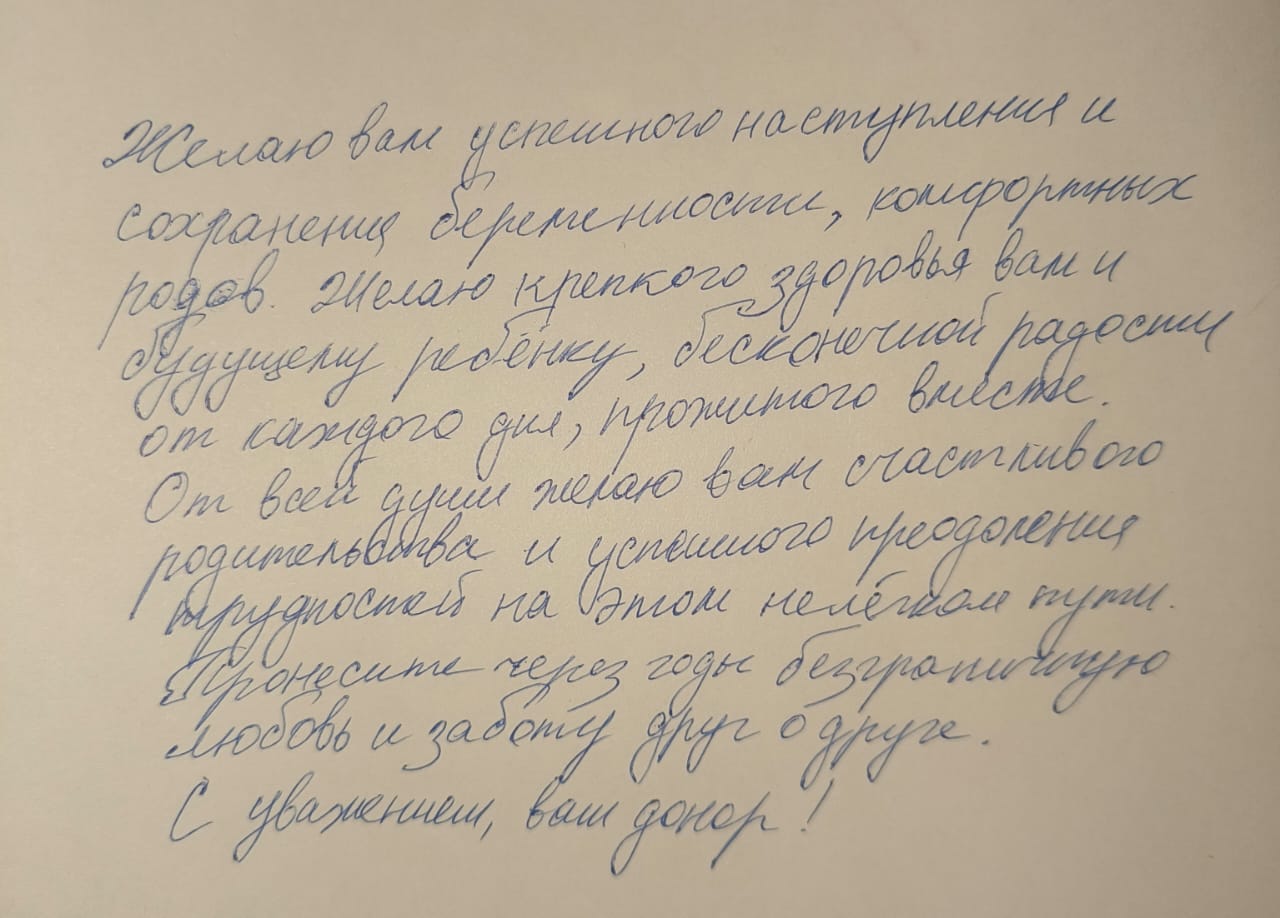 Желаю вам успешного наступления и
сохранения беременности, комфортных
родов. Желаю крепкого здоровья вам и
будущему ребёнку, бесконечной радости
от каждого дня, прожитого вместе.
От всей души желаю вам счастливого
родительства и успешного преодоления
трудностей на этом нелёгком пути.
Пронесите через годы безграничную
любовь и заботу друг о друге.
С уважением, ваш донор!